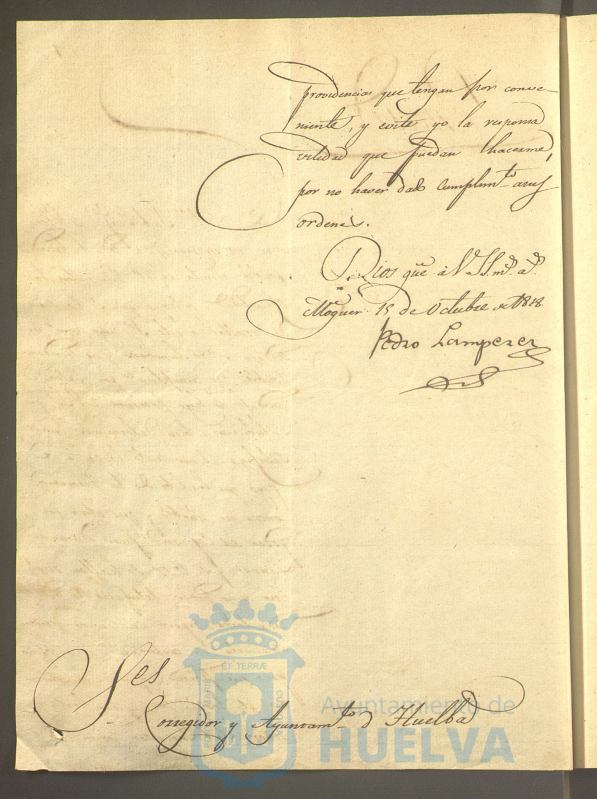 providencias que tengan por conve-
niente, y evite yo la responsa
vilidad que puedan hacerme,
por no haver dado cumplim.to a sus
ordenes.
Dios gue á V.SS. m.s a.s
Moguer 15 de Octubre de 1818.
Pedro Lamperez
Sres
Corregidor y Ayuntam.to d Huelba
ET TERRÆ
Ayuntamiento de
HUELVA